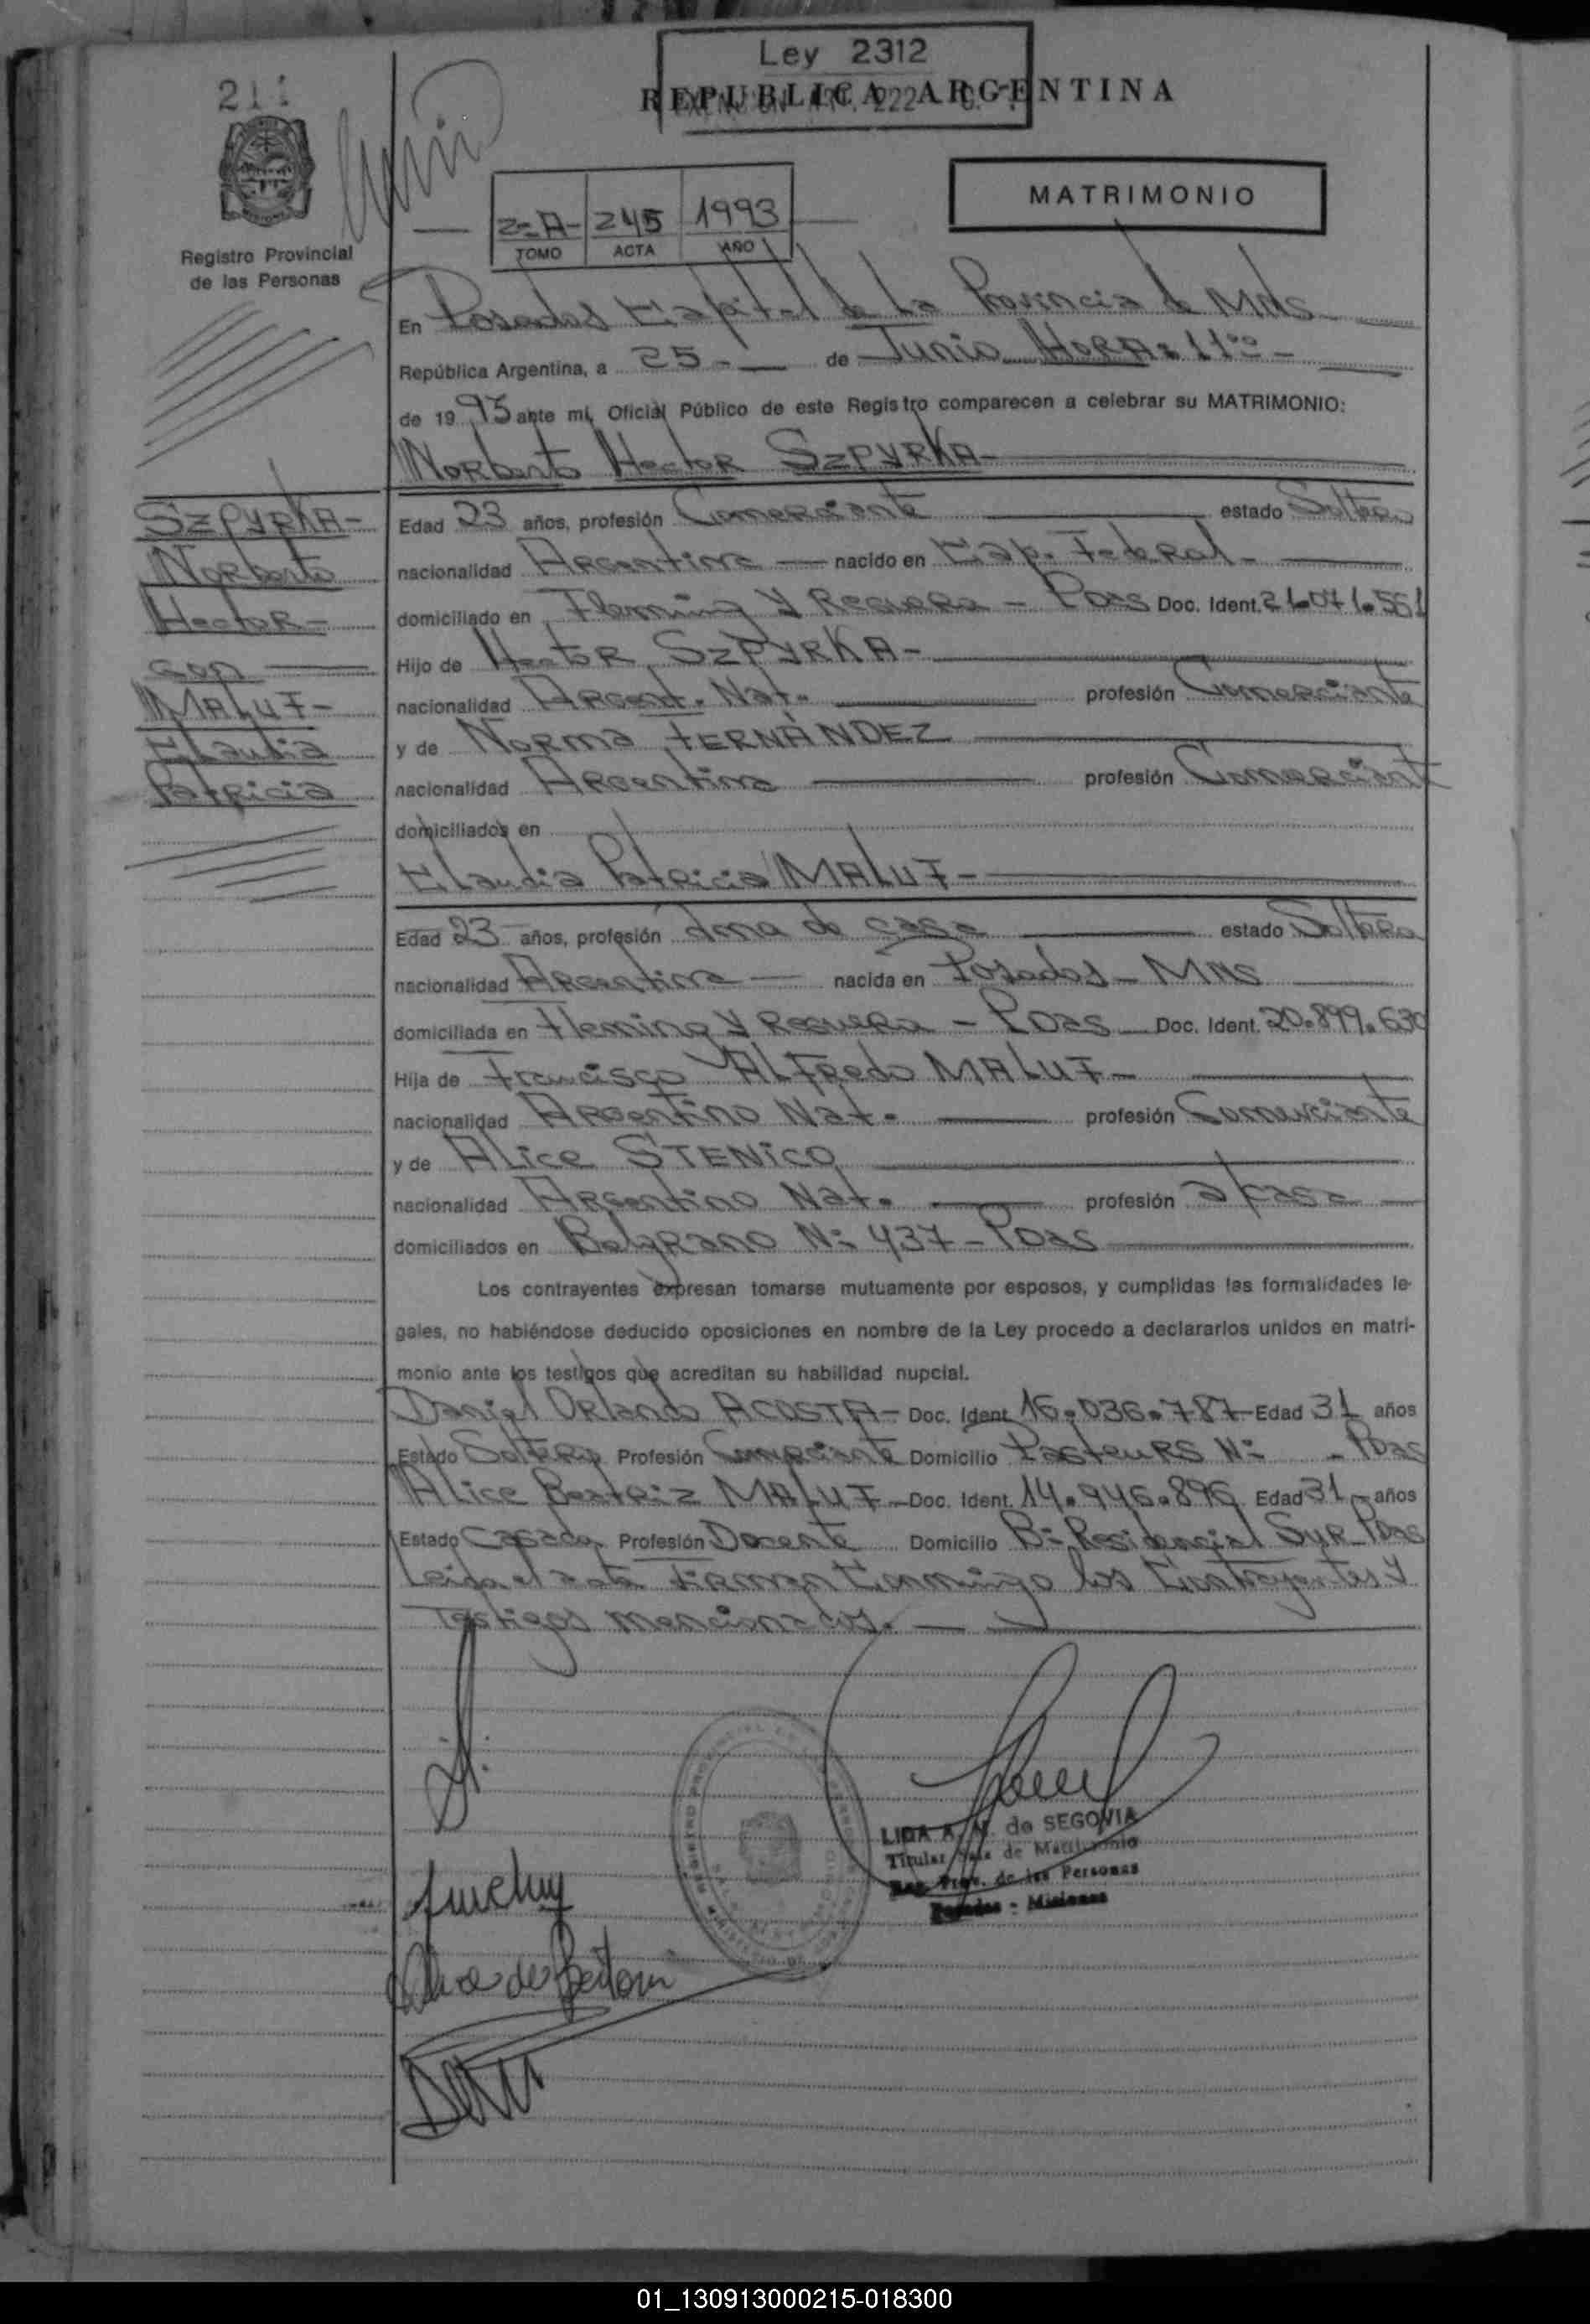 Ley 2312
REPUBLICA ARGENTINA
211
MATRIMONIO
2=A- 245 1993
TOMO ACTA AÑO
Registro Provincial
de las Personas
En Posadas Capital de La Provincia de Mnes
República Argentina, a 25 - de Junio HORA: 11oo -
de 1993 ante mí, Oficial Público de este Registro comparecen a celebrar su MATRIMONIO:
Norberto Hector SZPYRKA-
SZPYRKA-
Norberto
Hector-
con
MALUF-
Claudia
Patricia
Edad 23 años, profesión Comerciante estado Soltero
nacionalidad Argentina nacido en Cap. Federal -
domiciliado en Fleming y Reguera - Pdas Doc. Ident. 21.071.551
Hijo de Hector SZPYRKA-
nacionalidad Argent. Nat. profesión Comerciante
y de Norma FERNÁNDEZ
nacionalidad Argentina profesión Comerciante
domiciliados en
Claudia Patricia MALUF-
Edad 23 años, profesión Ama de casa estado Soltera
nacionalidad Argentina nacida en Posadas - Mnes
domiciliada en Fleming y Reguera - Pdas Doc. Ident. 20.899.630
Hija de Francisco Alfredo MALUF-
nacionalidad Argentino Nat. profesión Comerciante
y de Alice STENICO
nacionalidad Argentino Nat. profesión a/casa
domiciliados en Belgrano Nº 437 - Pdas
Los contrayentes expresan tomarse mutuamente por esposos, y cumplidas las formalidades le-
gales, no habiéndose deducido oposiciones en nombre de la Ley procedo a declararlos unidos en matri-
monio ante los testigos que acreditan su habilidad nupcial.
Daniel Orlando ACOSTA- Doc. Ident. 16.036.787- Edad 31 años
Estado Soltero Profesión Comerciante Domicilio Nº - Pdas
Alice Beatriz MALUF- Doc. Ident. 14.946.896 Edad 31- años
Estado Casada Profesión Docente Domicilio Bº Residencial Sur Pdas
Leida el acta Firman Conmigo los Contrayentes y
Testigos mencionados.
LIDA A. M. de SEGOVIA
Titular Sala de Matrimonio
Reg. Prov. de las Personas
Posadas - Misiones
01_130913000215-018300